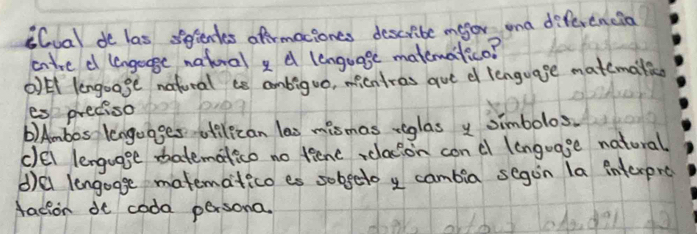 ¿Cual de las sigientes afirmaciones describe mejor una diferencia
entre el lenguage natural y el lenguage matematico?
a)El lenguage natural es ambiguo, mientras que el lenguaje matematico
es preciso
b)Ambos lenguages utilizan las mismas reglas y símbolos.
c)El lenguage matemático no tiene relación con el lenguage natural
d)El lenguage matemático es sobjeto y cambia según la interpre
tación de cada persona.